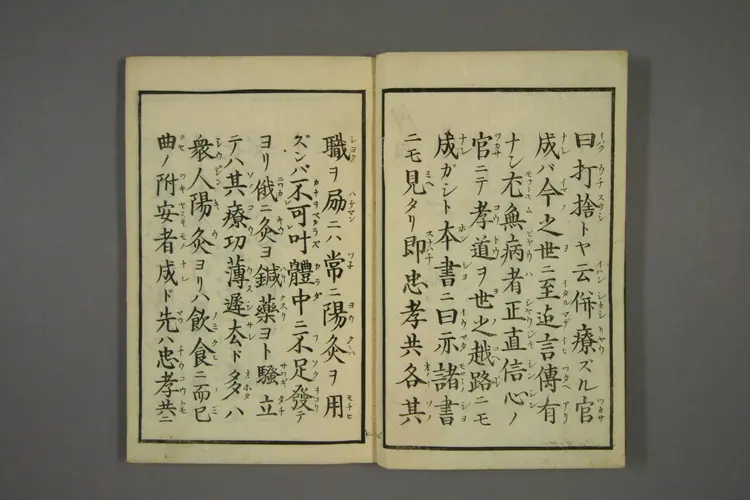 曰打捨トヤ云併療ズル官
成バ今之世ニ至迠言傳有
ナン尤無病者正直信心ノ
官ニテ孝道ヲ世之越路ニモ
成ガシト本書ニ曰亦諸書
ニモ見タリ即忠孝共各其
職ヲ励ニハ常ニ陽灸ヲ用
ズンバ不可叶體中ニ不足發テ
ヨリ俄ニ灸ヨ鍼藥ヨト騒立
テハ其療功薄遲厺ド多ハ
衆人陽灸ヨリハ飲食ニ而已
曲ノ附安者成ド先ハ忠孝共ニ